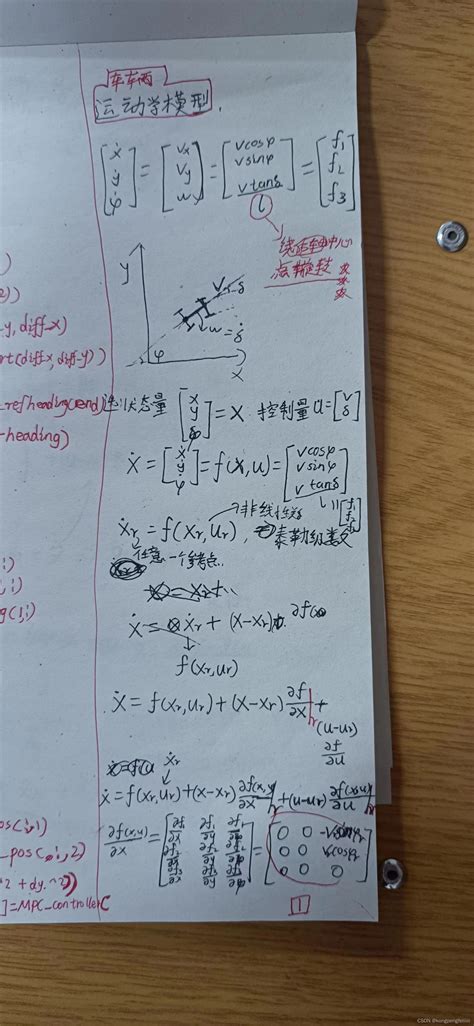 车车两
运动学模型.
[ẋ ẏ φ̇] = [Vx Vy wy] = [vcosφ vsinφ vtanδ/l] = [f1 f2 f3]
绕后轴中心
点旋转
y
V
δ
w=δ̇
φ
x
选状态量 [x y φ] = X. 控制量 u=[v δ]
Ẋ = [ẋ ẏ φ̇] = f(X,u) = [vcosφ vsinφ vtanδ/l] = [f1 f2 f3]
Ẋr = f(Xr,ur), 泰勒级数
任意一个参考点.
Ẋ = Ẋr + (X-Xr)
f(Xr,ur)
Ẋ = f(Xr,ur) + (X-Xr) ∂f/∂x|r + (u-ur) ∂f/∂u
Ẋr
Ẋ = f(Xr,ur) + (X-Xr) ∂f(x,u)/∂x|r + (u-ur) ∂f(x,u)/∂u|r
∂f(x,u)/∂x = [∂f1/∂x ∂f1/∂y ∂f1/∂φ ∂f2/∂x ∂f2/∂y ∂f2/∂φ ∂f3/∂x ∂f3/∂y ∂f3/∂φ] = [0 0 -vsinφr 0 0 vcosφr 0 0 0]
1
)
2))
-y, diff_x)
rt(diff_x, diff_y))
_refheading(end)
-heading)
os(i,1)
_pos(:,2)
^2 + dy.^2))
]=MPC_controller(